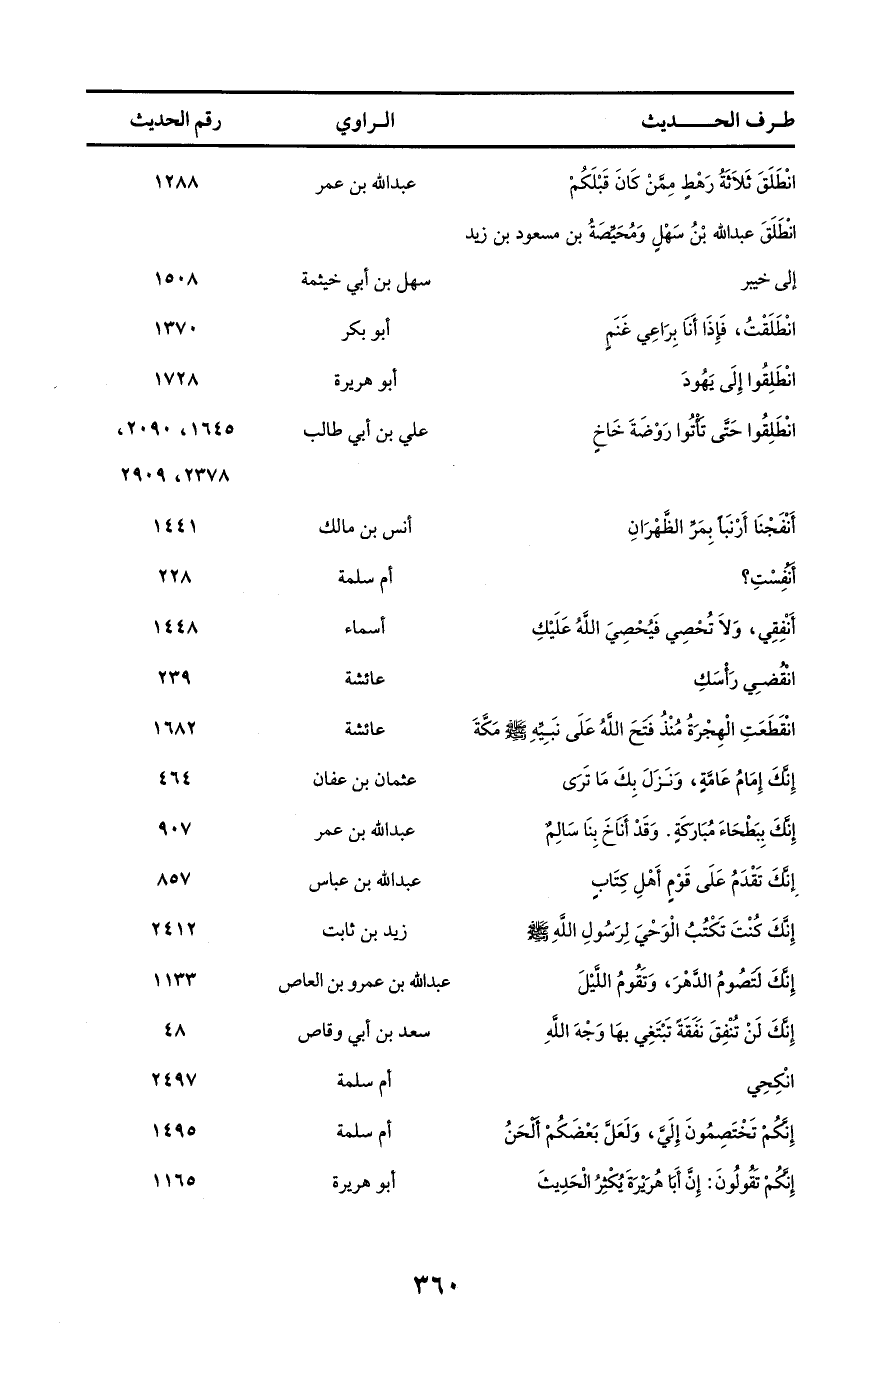 طـرف الحـــــديث الـراوي رقم الحديث
انْطَلَقَ ثَلاَثَةُ رَهْطٍ مِمَّنْ كَانَ قَبْلَكُمْ عبدالله بن عمر ١٢٨٨
انْطَلَقَ عبدالله بْنُ سَهْلٍ وَمُحَيِّصَةُ بن مسعود بن زيد
إلى خيبر سهل بن أبي خيثمة ١٥٠٨
انْطَلَقْتُ، فَإِذَا أَنَا بِرَاعِي غَنَمٍ أبو بكر ١٣٧٠
انْطَلِقُوا إِلَى يَهُودَ أبو هريرة ١٧٢٨
انْطَلِقُوا حَتَّى تَأْتُوا رَوْضَةَ خَاخٍ علي بن أبي طالب ١٦٤٥، ٢٠٩٠،
٢٣٧٨، ٢٩٠٩
أَنْفَجْنَا أَرْنَباً بِمَرِّ الظَّهْرَانِ أنس بن مالك ١٤٤١
أَنُفِسْتِ؟ أم سلمة ٢٢٨
أَنْفِقِي، وَلاَ تُحْصِي فَيُحْصِيَ اللَّهُ عَلَيْكِ أسماء ١٤٤٨
انْقُضـِي رَأْسَكِ عائشة ٢٣٩
انْقَطَعَتِ الْهِجْرَةُ مُنْذُ فَتَحَ اللَّهُ عَلَى نَبـِيِّهِ ﷺ مَكَّةَ عائشة ١٦٨٢
إِنَّكَ إِمَامُ عَامَّةٍ، وَنَـزَلَ بِكَ مَا تَرَى عثمان بن عفان ٤٦٤
إِنَّكَ بِبَطْحَاءَ مُبَارَكَةٍ. وَقَدْ أَنَاخَ بِنَا سَالِمٌ عبدالله بن عمر ٩٠٧
إِنَّكَ تَقْدَمُ عَلَى قَوْمٍ أَهْلِ كِتَابٍ عبدالله بن عباس ٨٥٧
إِنَّكَ كُنْتَ تَكْتُبُ الْوَحْيَ لِرَسُولِ اللَّهِ ﷺ زيد بن ثابت ٢٤١٢
إِنَّكَ لَتَصُومُ الدَّهْرَ، وَتَقُومُ اللَّيْلَ عبدالله بن عمرو بن العاص ١١٣٣
إِنَّكَ لَنْ تُنْفِقَ نَفَقَةً تَبْتَغِي بِهَا وَجْهَ اللَّهِ سعد بن أبي وقاص ٤٨
انْكِحِي أم سلمة ٢٤٩٧
إِنَّكُمْ تَخْتَصِمُونَ إِلَيَّ، وَلَعَلَّ بَعْضَكُمْ أَلْحَنُ أم سلمة ١٤٩٥
إِنَّكُمْ تَقُولُونَ: إِنَّ أَبَا هُرَيْرَةَ يُكْثِرُ الْحَدِيثَ أبو هريرة ١١٦٥
٣٦٠